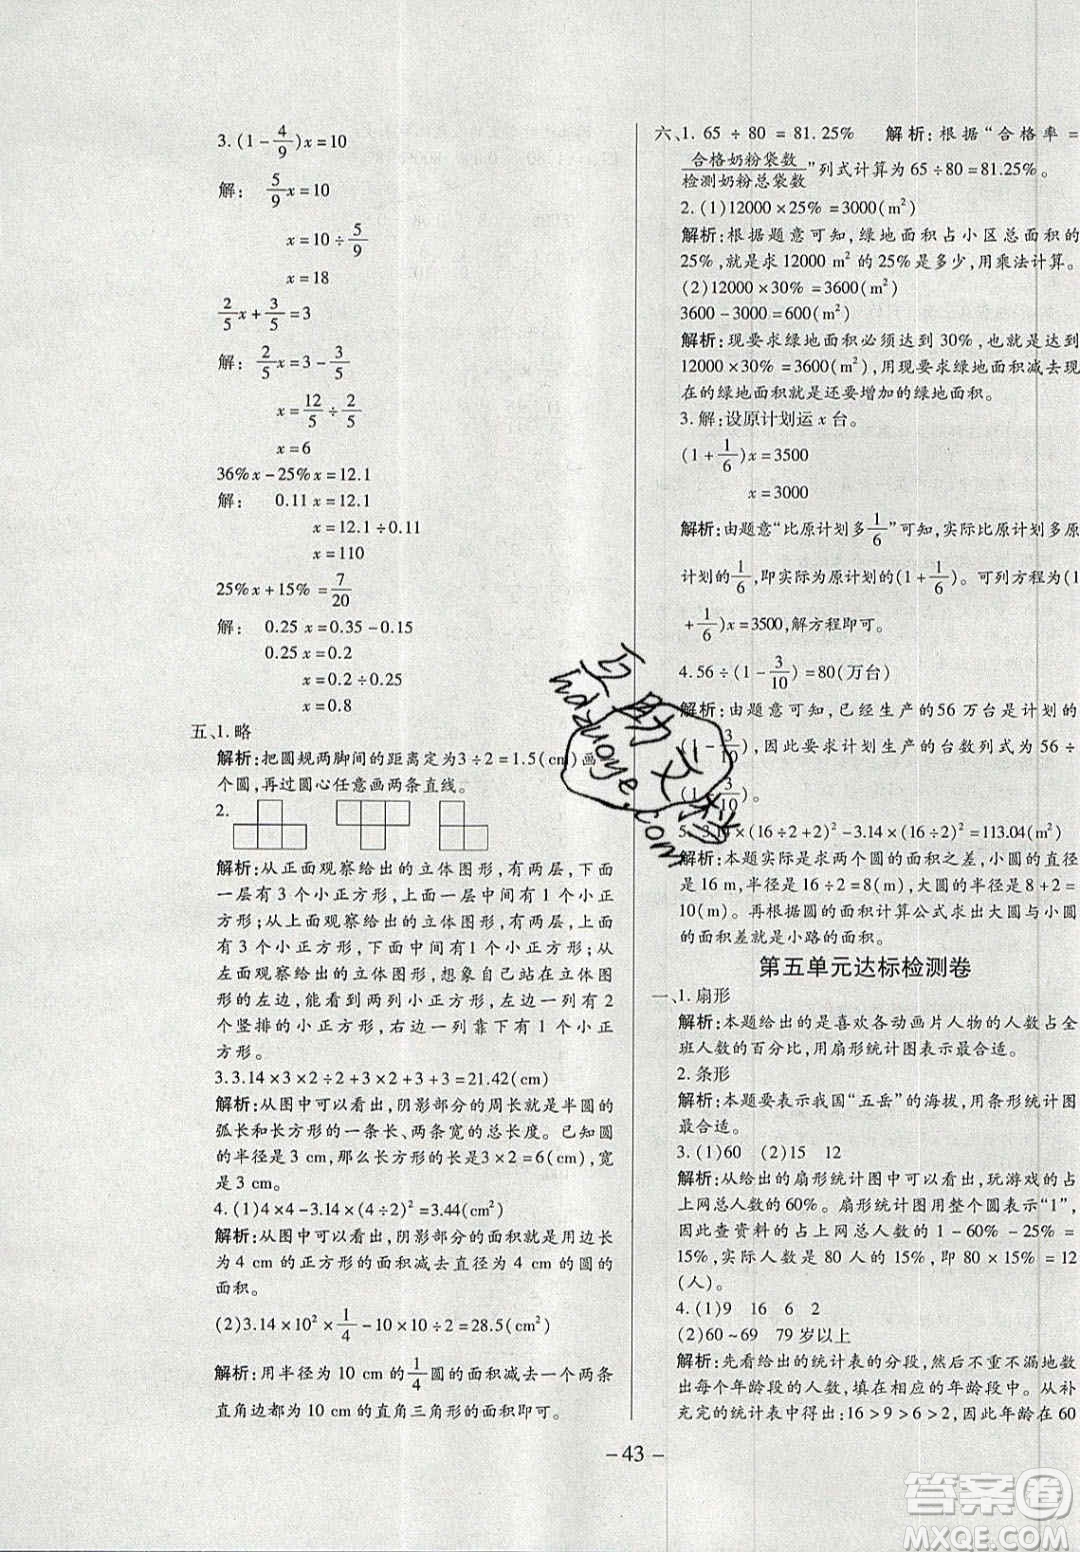 3. (1 − 4/9)x = 10
解： 5/9 x = 10
x = 10 ÷ 5/9
x = 18
2/5 x + 3/5 = 3
解： 2/5 x = 3 − 3/5
x = 12/5 ÷ 2/5
x = 6
36%x − 25%x = 12.1
解： 0.11x = 12.1
x = 12.1 ÷ 0.11
x = 110
25%x + 15% = 7/20
解： 0.25x = 0.35 − 0.15
0.25x = 0.2
x = 0.2 ÷ 0.25
x = 0.8
五、1. 略
解析:把圆规两脚间的距离定为3 ÷ 2 = 1.5(cm)画
个圆,再过圆心任意画两条直线。
2.
解析:从正面观察给出的立体图形,有两层,下面
一层有 3 个小正方形,上面一层中间有 1 个小正
方形;从上面观察给出的立体图形,有两层,上面
有 3 个小正方形,下面中间有 1 个小正方形;从
左面观察给出的立体图形,想象自己站在立体图形
的左边,能看到两列小正方形,左边一列有 2
个竖排的小正方形,右边一列靠下有 1 个小正
方形。
3. 3.14 × 3 × 2 ÷ 2 + 3 × 2 + 3 + 3 = 21.42(cm)
解析:从图中可以看出,阴影部分的周长就是半圆的
弧长和长方形的一条长、两条宽的总长度。已知圆
的半径是 3 cm,那么长方形的长是3 × 2 = 6(cm),宽
是 3 cm。
4. (1)4 × 4 − 3.14 × (4 ÷ 2)² = 3.44(cm²)
解析:从图中可以看出,阴影部分的面积就是用边长
为 4 cm 的正方形的面积减去直径为 4 cm 的圆的
面积。
(2)3.14 × 10² × 1/4 − 10 × 10 ÷ 2 = 28.5(cm²)
解析:用半径为 10 cm 的 1/4 圆的面积减去一个两条
直角边都为 10 cm 的直角三角形的面积即可。
六、1. 65 ÷ 80 = 81.25% 解析:根据“合格率 =
合格奶粉袋数/检测奶粉总袋数”列式计算为 65 ÷ 80 = 81.25%。
2. (1)12000 × 25% = 3000(m²)
解析:根据题意可知,绿地面积占小区总面积的
25%,就是求 12000 m² 的 25% 是多少,用乘法计算。
(2)12000 × 30% = 3600(m²)
3600 − 3000 = 600(m²)
解析:现要求绿地面积必须达到 30%,就是
12000 × 30% = 3600(m²),用现要求绿地面积减去现
在的绿地面积就是还要增加的绿地面积。
3. 解:设原计划运 x 台。
(1 + 1/6)x = 3500
x = 3000
解析:由题意“比原计划多 1/6”可知,实际比原计划多原
计划的 1/6,即实际为原计划的(1 + 1/6)。可列方程为(1
+ 1/6)x = 3500,解方程即可。
4. 56 ÷ (1 − 3/10) = 80(万台)
解析:由题意可知,已经生产的56 万台是计划的
(1 − 3/10),因此要求计划生产的台数列式为 56 ÷
(1 − 3/10)。
5. 3.14 × (16 ÷ 2 + 2)² − 3.14 × (16 ÷ 2)² = 113.04(m²)
解析:本题实际是求两个圆的面积之差,小圆的直径
是 16 m,半径是 16 ÷ 2 = 8(m),大圆的半径是 8 + 2 =
10(m)。再根据圆的面积计算公式求出大圆与小圆
的面积差就是小路的面积。
第五单元达标检测卷
一、1. 扇形
解析:本题给出的是喜欢各动画片人物的人数占全
班人数的百分比,用扇形统计图表示最合适。
2. 条形
解析:本题要表示我国“五岳”的海拔,用条形统计图
最合适。
3. (1)60 (2)15 12
解析:从给出的扇形统计图中可以看出,玩游戏的占
上网总人数的 60%。扇形统计图用整个圆表示“1”,
因此查资料的占上网总人数的 1 − 60% − 25% =
15%,实际人数是 80 人的 15%,即 80 × 15% = 12
(人)。
4. (1)9 16 6 2
(2)60 ~ 69 79 岁以上
解析:先看给出的统计表的分段,然后不重不漏地数
出每个年龄段的人数,填在相应的年龄段中。从补
充完的统计表中得出:16 > 9 > 6 > 2,因此年龄在 60
− 43 −
互动文档
hdzuoye.com
答案圈
MXQE.COM